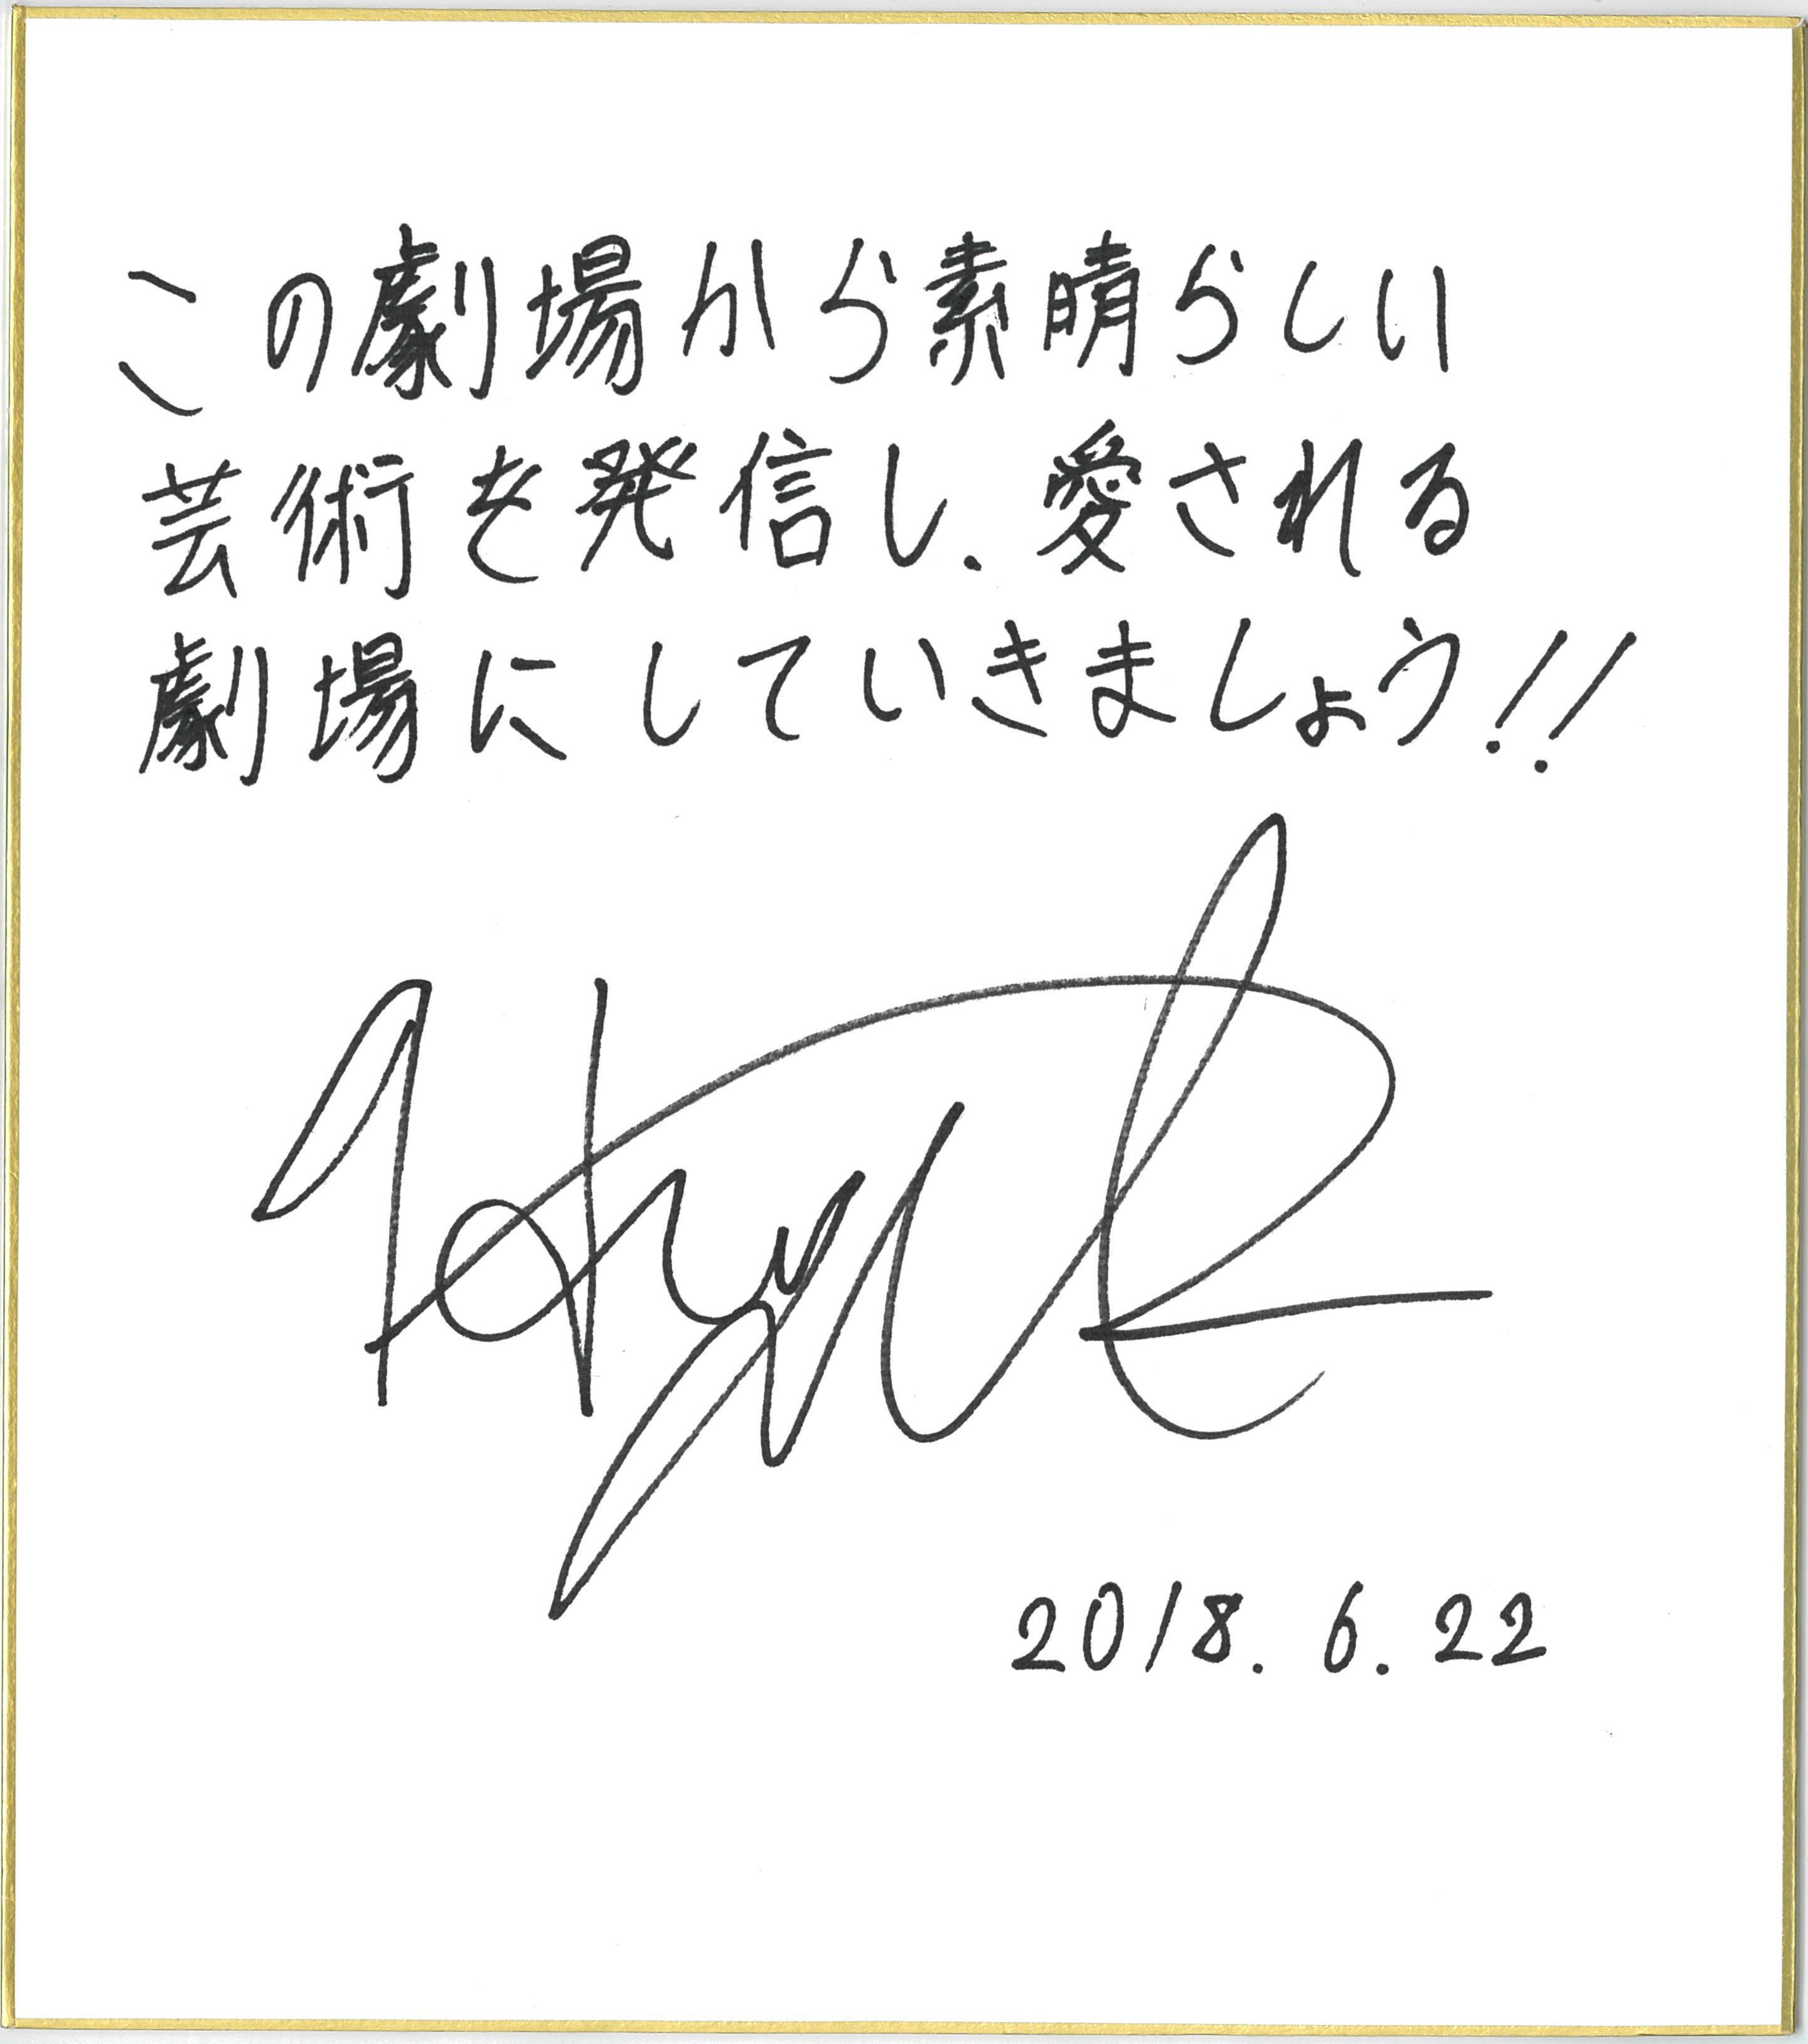 この劇場から素晴らしい
芸術を発信し、愛される
劇場にしていきましょう!!
2018.6.22